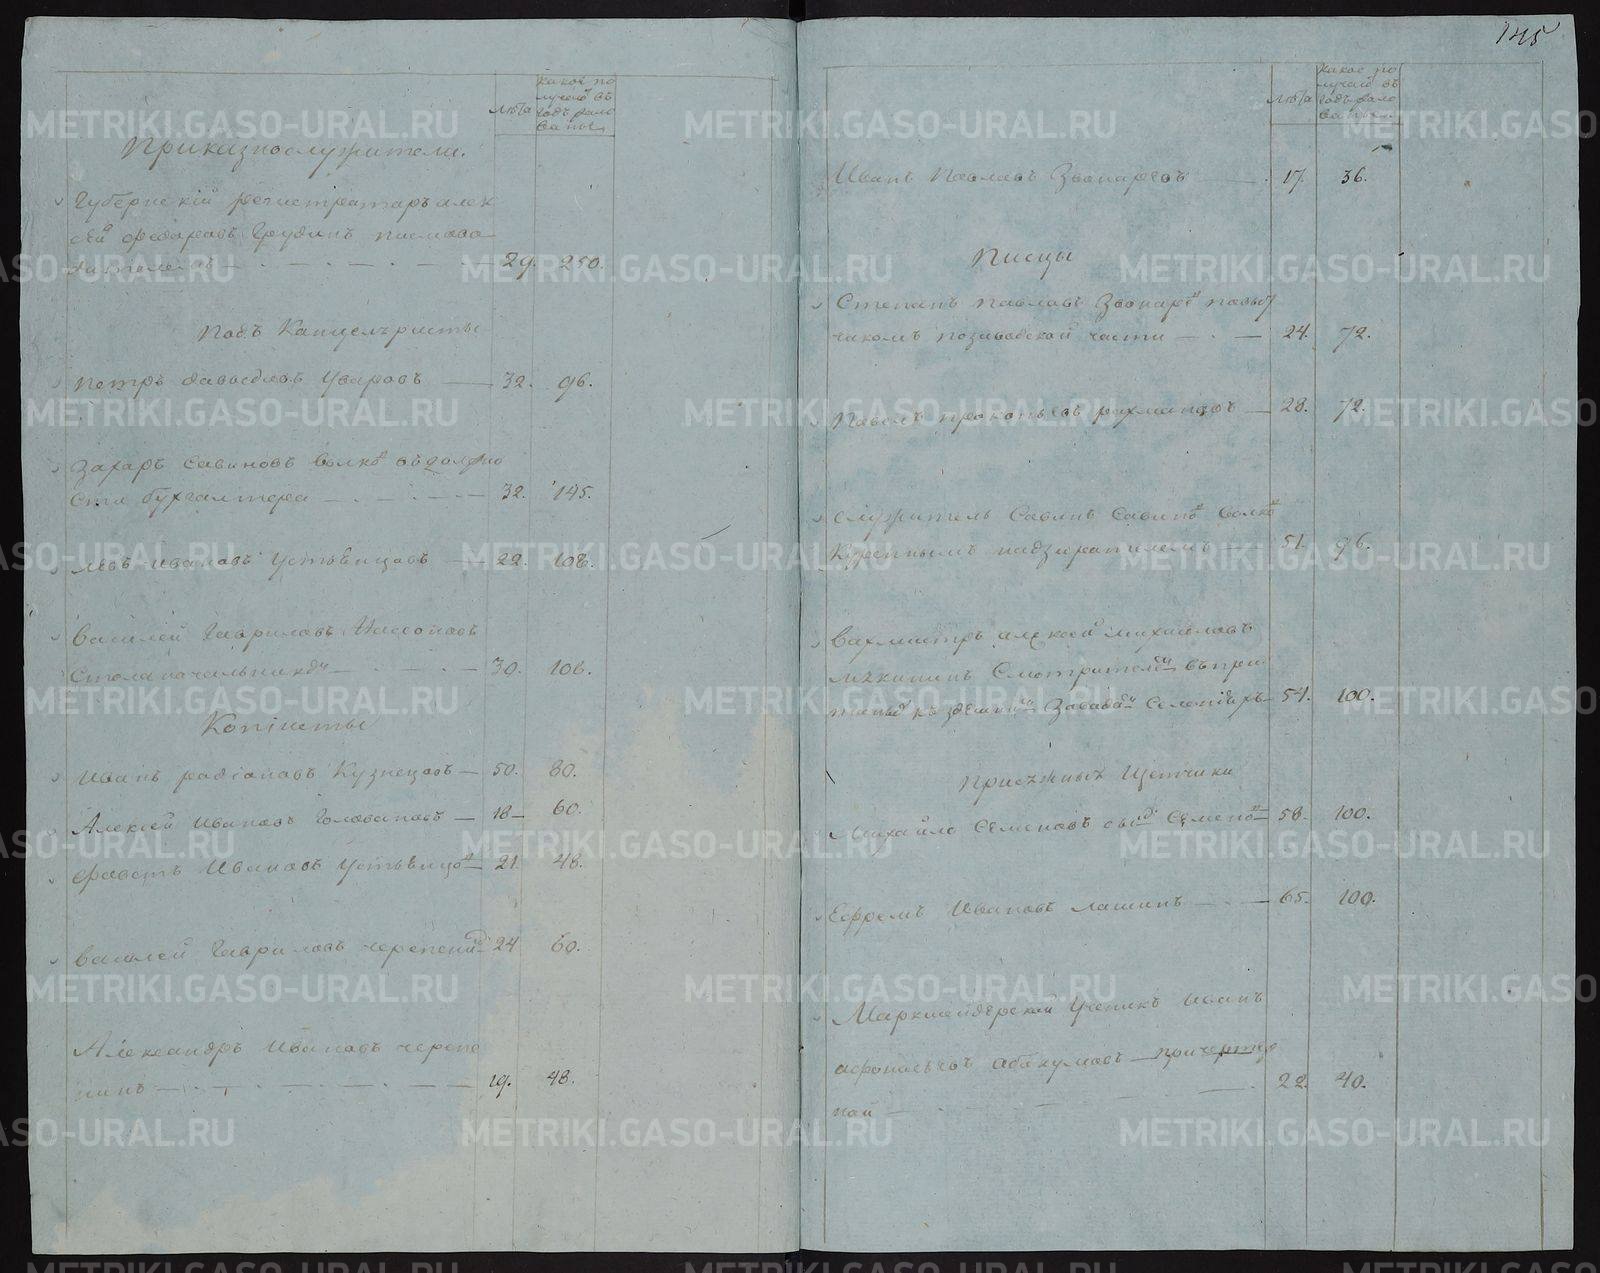 лѣта
какое по
лучаю въ
годъ жало
ванье
Приказнослужители.
Губернскій регистраторъ алек
сѣй Федоравъ Грудинъ писмово
дителемъ 29. 250.
Подъ Канцелъристы
Петръ давыдовъ Уваровъ 32. 96.
Захаръ Савиновъ волкъ въ должно
сти бухгалтера 32. 145.
левъ Ивановъ Устьвицовъ 22. 108.
Василей Гавриловъ
Столаначальникомъ 30. 108.
Копіисты
Иванъ радіановъ Кузнецовъ 50. 80.
Алексѣй Ивановъ Головановъ 18 60.
Ивановъ Устьвицо 21. 48.
Василей Гавриловъ черепени 24 60.
Александръ Ивановъ черепе
нинъ 19. 48.
145
лѣта
какое по
лучаю въ
годъ жало
ванье
Иванъ Павлавъ Звонаревъ 17. 36.
Писцы
Степанъ Павлавъ Звонаре повы
чикомъ позаводской части 24. 72.
Павелъ прокопьевъ рахмановъ 28. 72.
Служитель Савинъ волко
Куреннымъ надзирателемъ 51. 96.
Вахмистръ алексѣй михайлавъ
Смотрителемъ въ при
51. 100.
Приежныхъ Щетчики
Михайло Семеновъ Семено 58. 100.
Ефремъ Ивановъ лашинъ 65. 100.
Маркшейдерской Ученикъ Иванъ
афонасьевъ абакумовъ причертеж
ной 22. 40.
METRIKI.GASO-URAL.RU